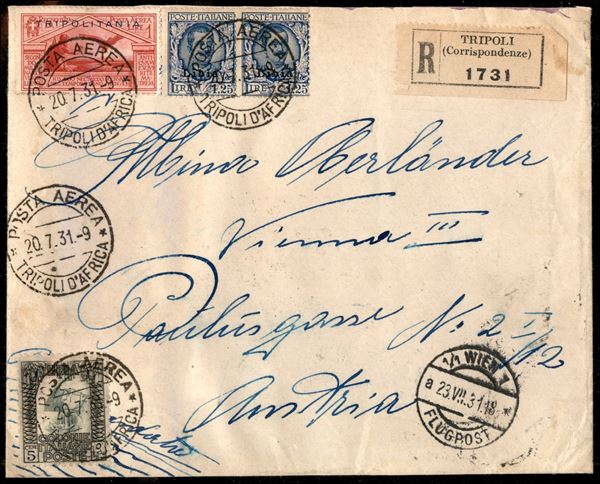 TRIPOLITANIA
POSTE·ITALIANE
POSTE·ITALIANE
Libia
Libia
LIRE 1.25
LIRE 1.25
* POSTA AEREA *
20.7.31.-9
TRIPOLI D'AFRICA
R
TRIPOLI
(Corrispondenze)
1731
Albina Oberländer
Vienna III
Paulusgasse N. 2 I/12
Austria
* POSTA AEREA *
20.7.31.-9
TRIPOLI D'AFRICA
1/1 WIEN 1
a 23.VII.31.18 *
FLUGPOST
POSTA AEREA *
AFRICA
5 COLONIE
POSTE